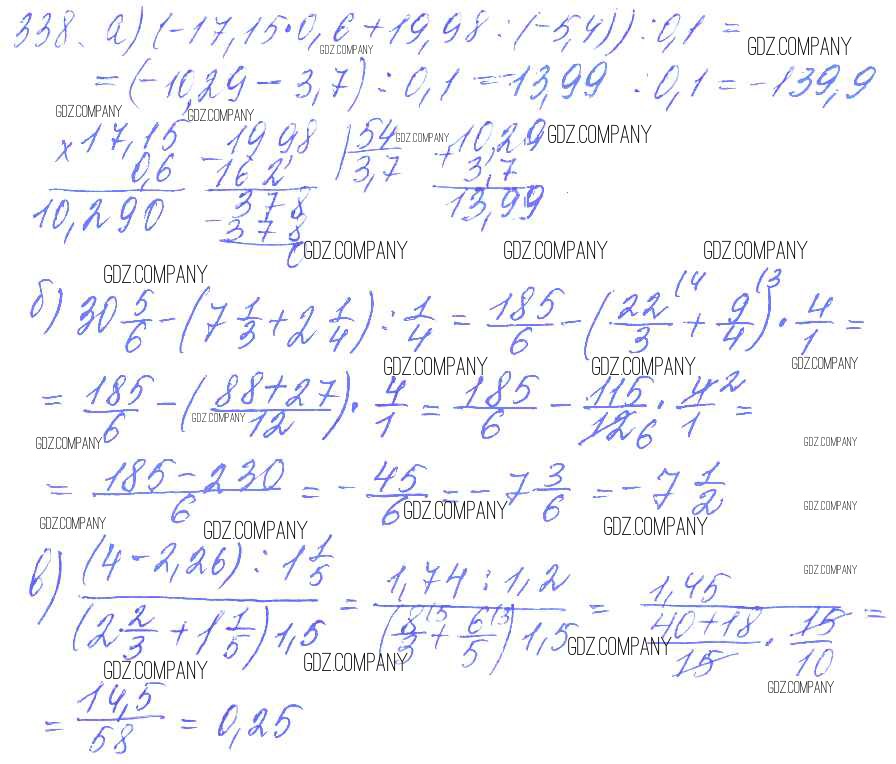 338. а) (-17,15·0,6 + 19,98 : (-5,4)) : 0,1 =
GDZ.COMPANY GDZ.COMPANY
= (-10,29 - 3,7) : 0,1 = -13,99 : 0,1 = -139,9
GDZ.COMPANY GDZ.COMPANY
× 17,15 - 19,98 | 54 GDZ.COMPANY + 10,29 GDZ.COMPANY
0,6 16 2 3,7 3,7
10,290 - 378 13,99
378
0 GDZ.COMPANY GDZ.COMPANY GDZ.COMPANY
GDZ.COMPANY
б) 30 5/6 - (7 1/3 + 2 1/4) : 1/4 = 185/6 - (22/3 (4 + 9/4 (3) · 4/1 =
GDZ.COMPANY GDZ.COMPANY GDZ.COMPANY
= 185/6 - (88+27/12) · 4/1 = 185/6 - 115/12 6 · 4 2/1 =
GDZ.COMPANY GDZ.COMPANY GDZ.COMPANY
= 185-230/6 = - 45/6 = - 7 3/6 = - 7 1/2
GDZ.COMPANY GDZ.COMPANY
GDZ.COMPANY GDZ.COMPANY GDZ.COMPANY
в) (4-2,26) : 1 1/5 / (2 2/3 + 1 1/5) 1,5 = 1,74 : 1,2 / (8/3 (5 + 6/5 (3) 1,5 = 1,45 / 40+18/15 · 15/10 =
GDZ.COMPANY
GDZ.COMPANY GDZ.COMPANY GDZ.COMPANY
GDZ.COMPANY
= 14,5/58 = 0,25